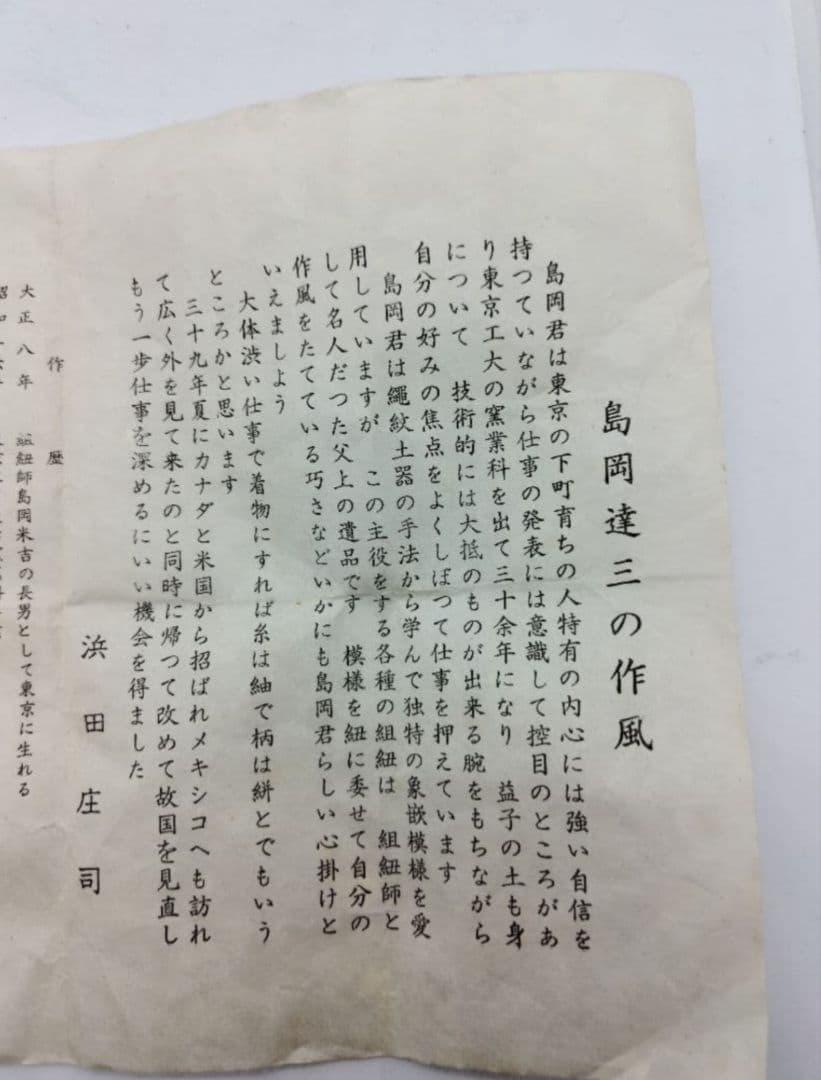 島岡達三の作風
島岡君は東京の下町育ちの人特有の内心には強い自信を
持つていながら仕事の発表には意識して控目のところがあ
り東京工大の窯業科を出て三十余年になり 益子の土も身
について 技術的には大抵のものが出来る腕をもちながら
自分の好みの焦点をよくしばつて仕事を押えています
島岡君は繩紋土器の手法から学んで独特の象嵌模様を愛
用していますが この主役をする各種の組紐は 組紐師と
して名人だつた父上の遺品です 模様を紐に委せて自分の
作風をたてている巧さなどいかにも島岡君らしい心掛けと
いえましよう
大体渋い仕事で着物にすれば糸は紬で柄は絣とでもいう
ところかと思います
三十九年夏にカナダと米国から招ばれメキシコへも訪れ
て広く外を見て来たのと同時に帰つて改めて故国を見直し
もう一歩仕事を深めるにいい機会を得ました
浜田庄司
作歴
大正八年 組紐師島岡米吉の長男として東京に生れる